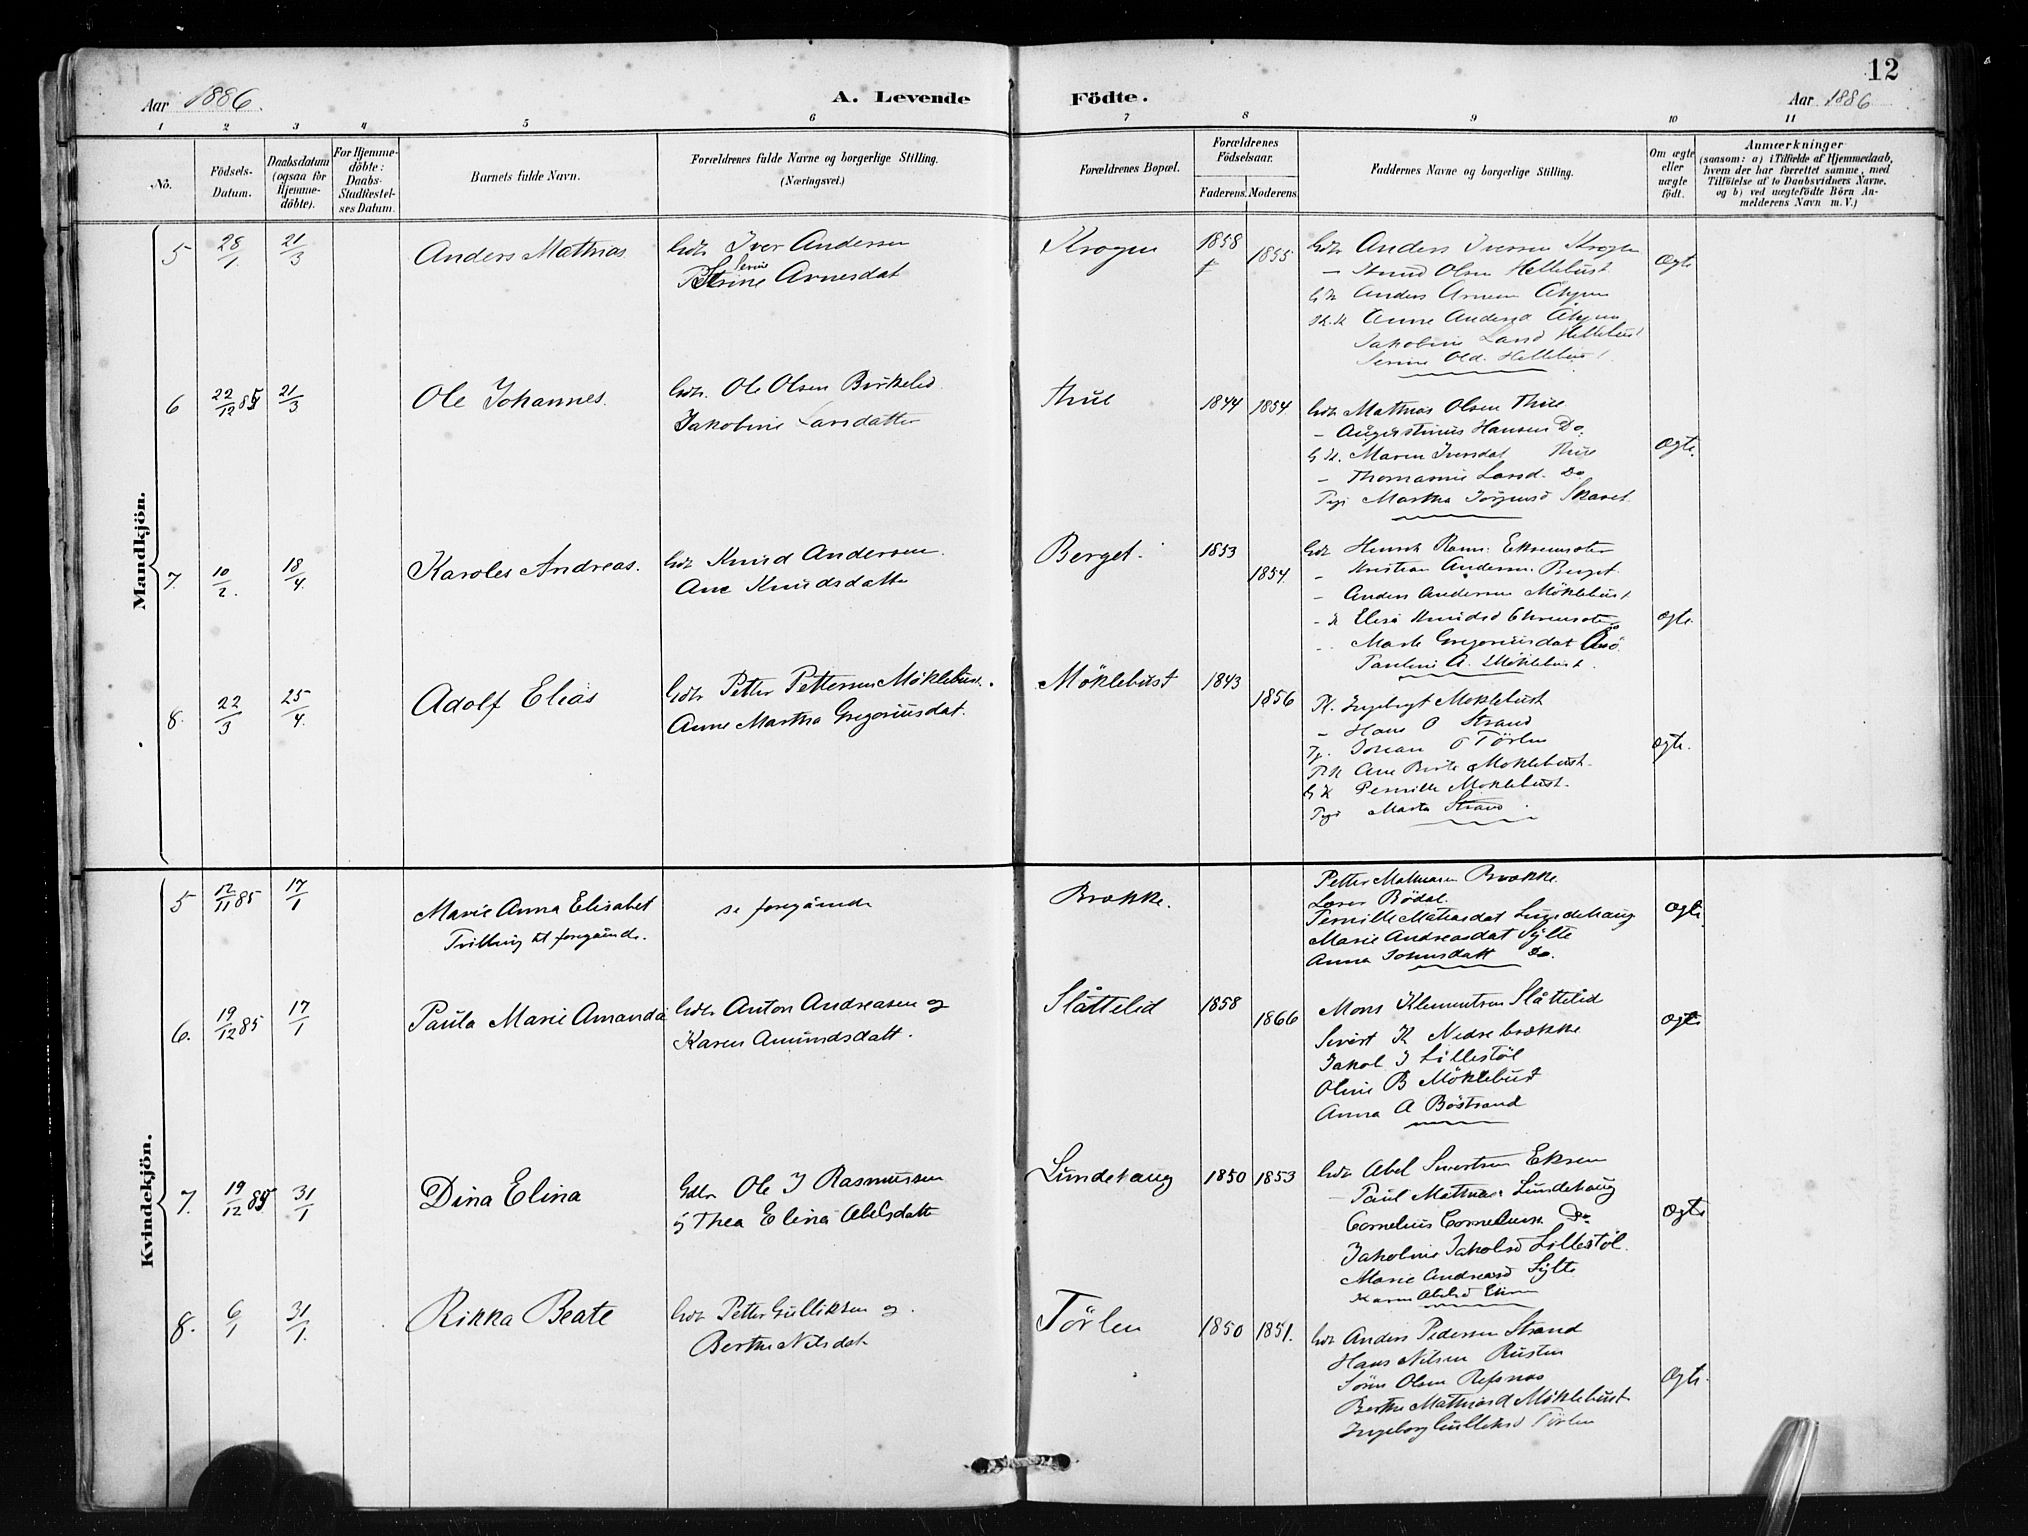 12
Aar 1886.
A. Levende Födte.
Aar 1886
1 2 3 4 5 6 7 8 9 10 11
No.
Födsels-
Datum.
Daabsdatum
(ogsaa for
Hjemme-
döbte).
For Hjemme-
döbte:
Daabs-
Stadfæstel-
ses Datum.
Barnets fulde Navn.
Forældrenes fulde Navne og borgerlige Stilling.
(Næringsvei.)
Forældrenes Bopæl.
Forældrenes
Födselsaar.
Faderens. Moderens.
Faddernes Navne og borgerlige Stilling.
Om ægte
eller
uægte
födt.
Anmærkninger
(saasom: a) i Tilfælde af Hjemmedaab,
hvem der har forrettet samme, med
Tilföielse af to Daabsvidners Navne,
og b) ved uægtefödte Börn An-
melderens Navn m. V.)
Mandkjön.
5 28/1 21/3 Anders Mathias
Gdr. Iver Andersen
Serine Arnesdat
Krogen 1858 1855
Gdr Anders Iversen Krogen
– Knud Olsen Hellebust
Anders Arnesen
Anne Andersd
Jakobine Larsd Hellebust
Serine Old. Hellebust
Ægte
6 22/12 85 21/3 Ole Johannes.
Gdr. Ole Olsen Birkelid
Jakobine Larsdatter
Thue 1844 1854
Gdr Mathias Olsen Thue
– Augustinus Hansen Do.
G K. Maren Iversdat Thue
– Thomasine Larsd. Do
Pige Martha Jörgensd Skaret
Ægte.
7. 10/2. 18/4 Karoles Andreas.
Gdr Knud Andersen.
Ane Knudsdatter
Berget. 1853 1854
– Kristian Andersen Berget
– Anders Andersen Möklebust
– K Elise Knudsd
Marte Gregoriusdat
Pauline A. Möklebust.
Ægte
8. 22/3 25/4 Adolf Elias
Gdr Petter Pettersen Möklebust.
Anne Martha Gregoriusdat.
Möklebust 1843 1856
Pk. Ingebrigt Moklebust
– Hans O Strand
Johan O Törlen
Ane Möklebust.
G K Pernille Moklebust.
Pige Marta Strand
Ægte.
Kvindekjön.
5 12/11 85 17/1 Marie Anna Elisabet
Tvilling til foregående.
se foregående
Brække.
Petter Mathiasen Brække
Lars Bödal.
Pernille Mathiasdat Lundehaug
Marie Andreasdat Sylte
Anna Johnsdatt Do.
Ægte
6. 19/12 85 17/1 Paula Marie Amanda
Gdr Anton Andreasen og
Karen Amundsdatt.
Slåttelid 1858 1866
Mons Klementsen Slåttelid
Sivert K Nedrebrække
Jakob J Lillestöl
Oline B Möklebust
Anna A Böstrand
Ægte
7. 19/12 85 31/1 Dina Elina
Gdr Ole J Rasmussen
og Thea Elina Abelsdatte
Lundehaug 1850 1853
Gdr Abel Sivertsen Eksen
– Paul Mathias Lundehaug
Cornelius Cornelius. Do
Jakobine Jakobsd Lillestöl.
Marie Andreasd Sylte
Karen Abelsd
Ægte
8. 6/1 31/1. Rikka Beate
Gdr Petter Gulliksen og
Berthe Nilsdat
Törlen 1850 1851.
Gdr Anders Pedersen Strand
Hans Nilsen Rusten
Sören Olsen Refsnæs
Berthe Mathiasd Möklebust
Ingeborg Gulliksd Törlen
Ægte.